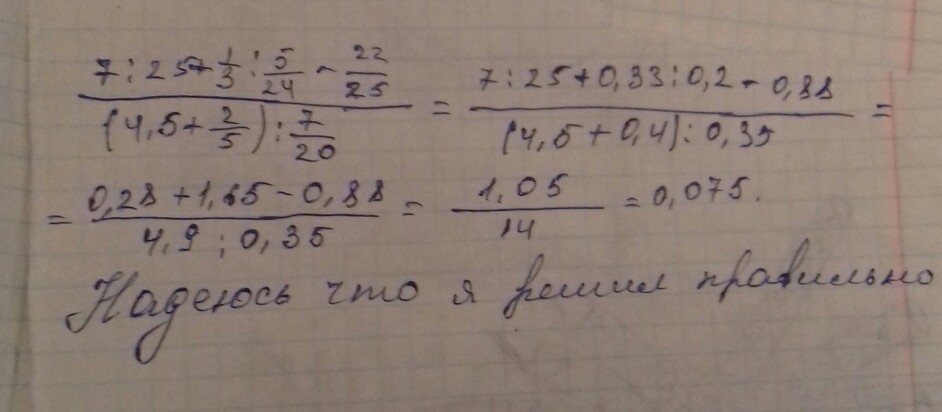 7:25+1/3:5/24-22/25 / (4,5+2/5):7/20 = 7:25+0,33:0,2-0,88 / (4,5+0,4):0,35 =
= 0,28+1,65-0,88 / 4,9:0,35 = 1,05 / 14 = 0,075.
Надеюсь что я решил правильно